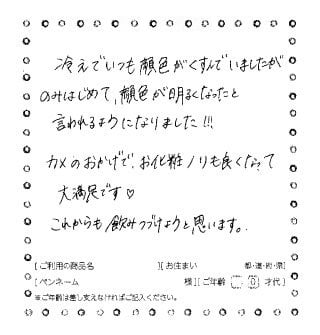 冷えでいつも顔色がくすんでいましたが
のみはじめて、顔色が明るくなったと
言われるようになりました!!!
カメのおかげで、お化粧ノリも良くなって
大満足です♡
これからも飲みつづけようと思います。
[ご利用の商品名 ][お住まい 都・道・府・県]
[ペンネーム 様][ご年齢 0 才代]
※ご年齢は差し支えなければご記入ください。